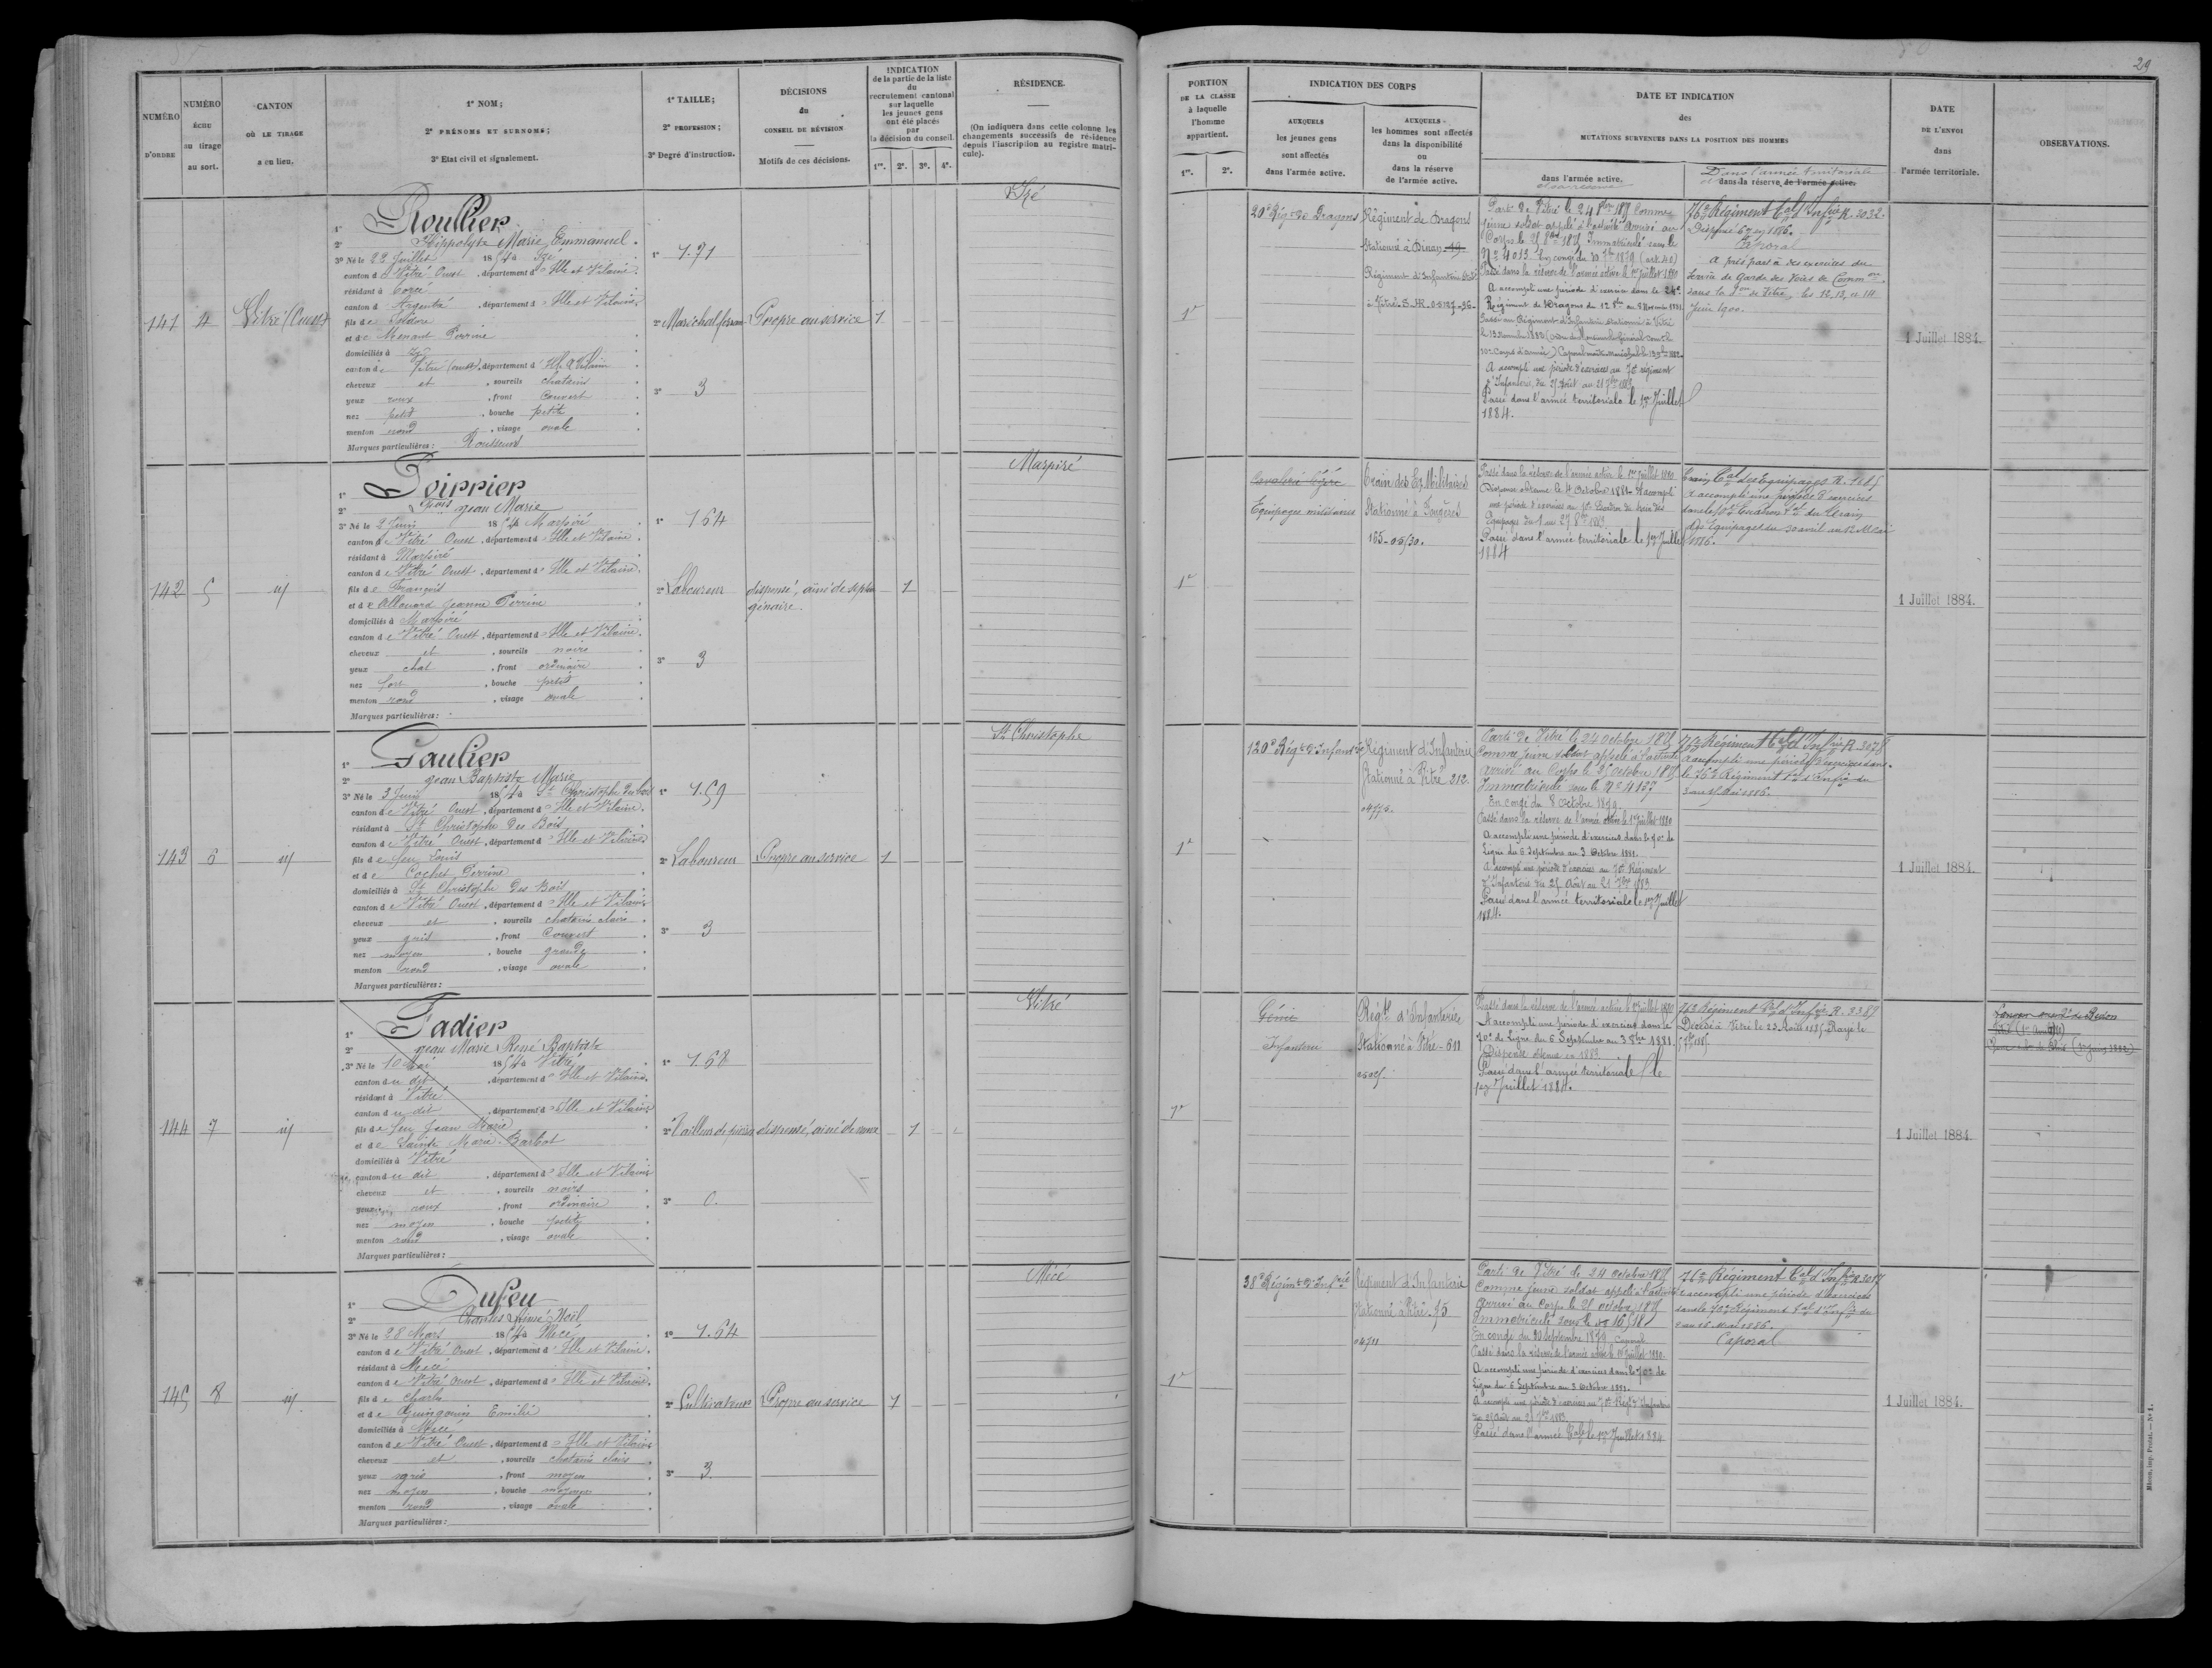 29
NUMÉRO D'ORDRE
NUMÉRO ÉCHU au tirage au sort.
CANTON OÙ LE TIRAGE a eu lieu.
1° NOM;
2° PRÉNOMS ET SURNOMS;
3° Etat civil et signalement.
1° TAILLE;
2° PROFESSION;
3° Degré d'instruction.
DÉCISIONS du CONSEIL DE RÉVISION
Motifs de ces décisions.
INDICATION de la partie de la liste du recrutement cantonal sur laquelle les jeunes gens ont été placés par la décision du conseil.
1re. 2e. 3e. 4e.
RÉSIDENCE.
(On indiquera dans cette colonne les changements successifs de résidence depuis l'inscription au registre matricule).
PORTION DE LA CLASSE à laquelle l'homme appartient.
1re. 2e.
INDICATION DES CORPS
AUXQUELS les jeunes gens sont affectés dans l'armée active.
AUXQUELS les hommes sont affectés dans la disponibilité ou dans la réserve de l'armée active.
DATE ET INDICATION des MUTATIONS SURVENUES DANS LA POSITION DES HOMMES
dans l'armée active.
et sa réserve
Dans l'armée territoriale
et dans la réserve de l'armée active.
DATE DE L'ENVOI dans l'armée territoriale.
OBSERVATIONS.
141
4
Vitré (Ouest)
1° Roullier
2° Hippolyte Marie Emmanuel
3° Né le 22 Juillet 1854 à Izé
canton de Vitré Ouest, département d'Ille et Vilaine.
résidant à Torcé
canton d'Argentré, département d'Ille et Vilaine
fils de Isidore
et de Perrine
domiciliés à Izé
canton de Vitré (ouest), département d'Ille et Vilaine
cheveux et, sourcils chatains
yeux roux, front couvert
nez petit, bouche petite
menton rond, visage ovale
Marques particulières: Rousseurs
1° 1.71
2° Maréchal ferrant
3° 3
Propre au service
1
Izé
1re
20e Régt de Dragons
Régiment de Dragons
Stationné à Dinan 19
Régiment d'Infanterie Stné
à Vitré
Parti de Vitré le 24 8bre 1875 Comme
jeune soldat appelé à l'activité arrivé au
Corps le 25 8bre 1875 Immatriculé sous le
No 4013 En congé du 30 7bre 1879 (art. 40)
Passé dans la réserve de l'armée active le 1er juillet 1880
A accompli une période d'exercices dans le 24e
Régiment de Dragons du 12 8bre au 8 Novembre 1881
Passé au Régiment d'Infanterie stationné à Vitré
A accompli une période d'exercices au 70e régiment
d'Infanterie du 25 Août au 21 7bre 1883
Passé dans l'armée territoriale le 1er Juillet
1884.
76e Régiment Tal d'Infrie R. 3032
Dispensé en 1886.
Caporal
A pris part à des exercices du
Service de Garde des Voies de Common
dans la Son de Vitré, les 12, 13, et 14
Juin 1900.
1 Juillet 1884.
142
5
id
1° Poirrier
2° Jean Marie
3° Né le 2 Juin 1854 à Marpiré
canton de Vitré Ouest, département d'Ille et Vilaine
résidant à Marpiré
canton de Vitré Ouest, département d'Ille et Vilaine.
fils de François
et de Allouard Jeanne Perrine
domiciliés à Marpiré
canton de Vitré Ouest, département d'Ille et Vilaine.
cheveux et, sourcils noirs
yeux chat, front ordinaire
nez fort, bouche petite
menton rond, visage ovale
Marques particulières:
1° 1.64
2° Laboureur
3° 3
dispensé, aîné de septuagénaire
1
Marpiré
1re
Cavalerie légère
Equipages militaires
Train des Eq. Militaires
Stationné à Fougères
165-05/30.
Passé dans la réserve de l'armée active le 1er juillet 1880
A accompli
une période d'exercices au 10e Escadron du train des
Equipages du 1 au 27 8bre 1883
Passé dans l'armée territoriale le 1er Juillet
1884
Train Tal des Equipages
A accompli une période d'exercices
dans le 10e Escadron Tal du train
des Equipages du 30 avril au 12 Mai
1886.
1 Juillet 1884.
143
6
id
1° Gaulier
2° Jean Baptiste Marie
3° Né le 3 Juin 1854 à St Christophe des bois
canton de Vitré Ouest, département d'Ille et Vilaine.
résidant à St Christophe des Bois
canton de Vitré Ouest, département d'Ille et Vilaine
fils de feu Louis
et de Cochet Perrine
domiciliés à St Christophe des Bois
canton de Vitré Ouest, département d'Ille et Vilaine
cheveux et, sourcils chatains clairs
yeux gris, front couvert
nez moyen, bouche grande
menton rond, visage ovale
Marques particulières:
1° 1.59
2° Laboureur
3° 3
Propre au service
1
St Christophe
1re
120e Régt d'Infanterie
Régiment d'Infanterie
Stationné à Vitré 212
04775.
Parti de Vitré le 24 octobre 1875
Comme jeune soldat appelé à l'activité
arrivé au Corps le 25 octobre 1875
Immatriculé sous le No 4137
En congé du 8 octobre 1879.
Passé dans la réserve de l'armée active le 1er Juillet 1880
A accompli une période d'exercices dans le 70e de
Ligne du 6 Septembre au 3 Octobre 1881.
A accompli une période d'exercices au 70e Régiment
d'Infanterie du 25 Août au 21 7bre 1883
Passé dans l'armée territoriale le 1er Juillet
1884.
76e Régiment Tal d'Infrie R. 3078
A accompli une période d'exercices dans
le 76e Régiment Tal d'Infrie du
1 Juillet 1884.
144
7
id
1° Tadier
2° Jean Marie René Baptiste
3° Né le 10 Mai 1854 à Vitré
canton du dit, département d'Ille et Vilaine.
résidant à Vitré
canton du dit, département d'Ille et Vilaine
fils de feu Jean Marie
et de Sainte Marie Barbot
domiciliés à Vitré
canton du dit, département d'Ille et Vilaine
cheveux et, sourcils noirs
yeux roux, front ordinaire
nez moyen, bouche petite
menton rond, visage ovale
Marques particulières:
1° 1.68
2° Tailleur de pierres
3° 0.
dispensé, aîné de veuve
1
Vitré
1re
Génie
Infanterie
Régt d'Infanterie
Stationné à Vitré - 611
Passé dans la réserve de l'armée active le 1er juillet 1880
A accompli une période d'exercices dans le
70e de Ligne du 6 Septembre au 3 8bre 1881.
Dispense obtenue en 1883.
Passé dans l'armée territoriale le
1er Juillet 1884.
76e Régiment Tal d'Infrie R. 3369
Décédé à Vitré le 23 Août 1885 Rayé le
5 7bre 1885
1 Juillet 1884.
145
8
id
1° Dufeu
2° Charles Aimé Noël
3° Né le 28 Mars 1854 à Mecé
canton de Vitré Ouest, département d'Ille et Vilaine.
résidant à Mecé
canton de Vitré Ouest, département d'Ille et Vilaine.
fils de Charles
et de Guingouin Emilie
domiciliés à Mecé
canton de Vitré Ouest, département d'Ille et Vilaine
cheveux et, sourcils chatains clairs
yeux gris, front moyen
nez moyen, bouche moyenne
menton rond, visage ovale
Marques particulières:
1° 1.64
2° Cultivateur
3° 3
Propre au service
1
Mécé
1re
38e Régimt d'Infrie
Régiment d'Infanterie
Stationné à Vitré 75
04711
Parti de Vitré le 24 octobre 1875
Comme jeune soldat appelé à l'activité
Arrivé au Corps le 25 octobre 1875
Immatriculé sous le
En congé du 20 Septembre 1879 Caporal
Passé dans la réserve de l'armée active le 1er Juillet 1880.
A accompli une période d'exercices dans le 70e de
Ligne du 6 Septembre au 3 Octobre 1881.
A accompli une période d'exercices au 70e Régt d'Infanterie
du 25 Août au 21 7bre 1883.
Passé dans l'armée Tale le 1er Juillet 1884
76e Régiment Tal d'Infrie R 3017
A accompli une période d'exercices
dans le 76e Régiment Tal d'Infrie du
Caporal
1 Juillet 1884.